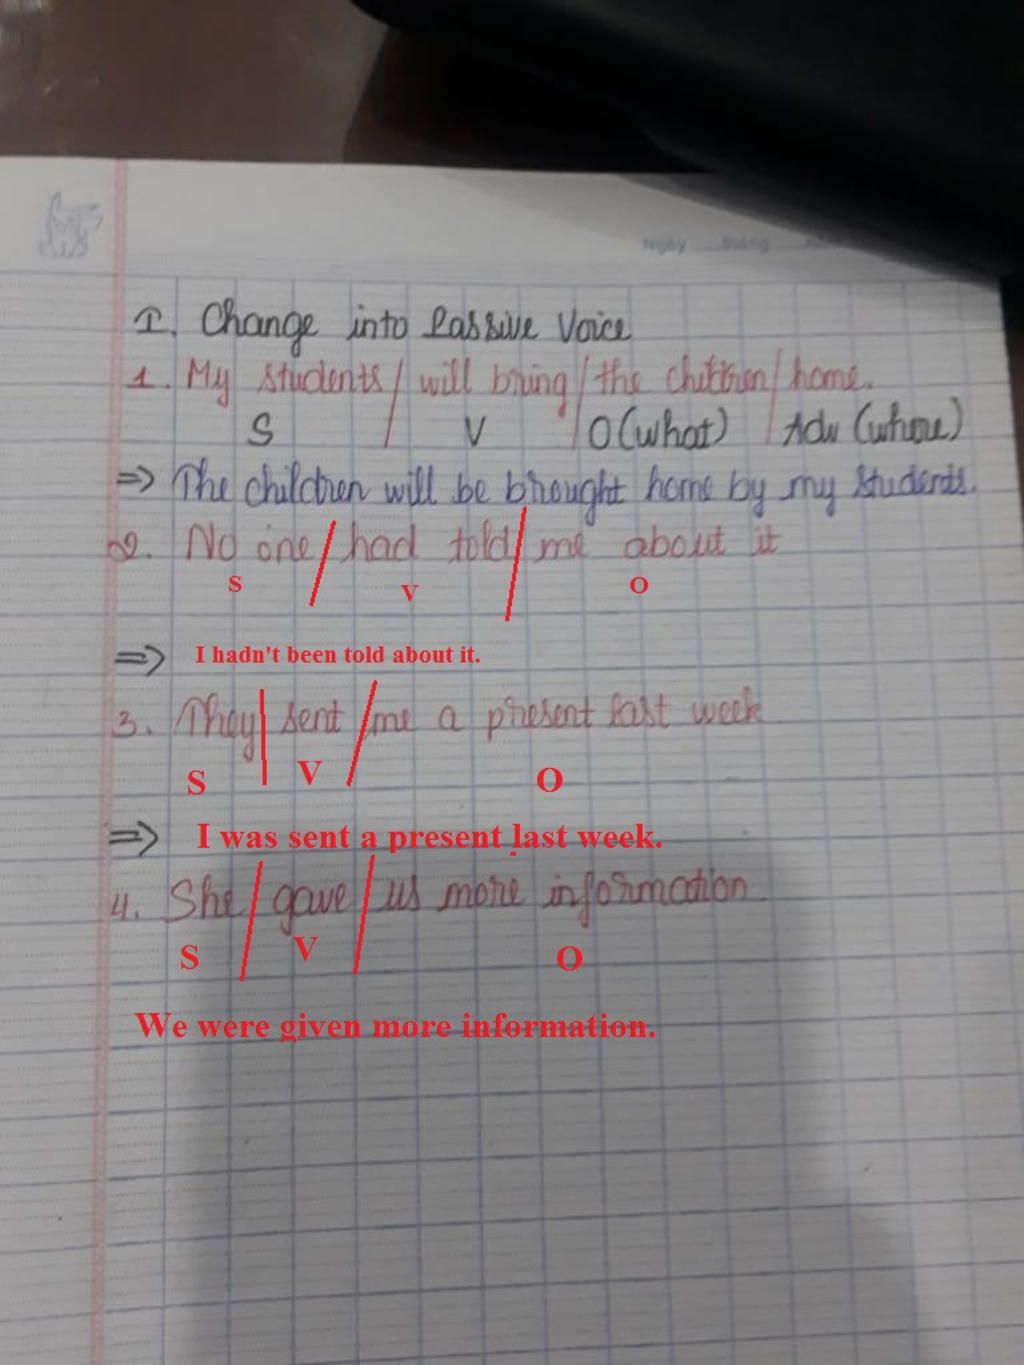 Ngày tháng
I. Change into Passive Voice
1. My students / will bring / the children / home.
S / V / O (what) / Adv (where)
=> The children will be brought home by my students.
2. No one / had told / me about it
S V O
=> I hadn't been told about it.
3. They / sent / me a present last week
S V O
=> I was sent a present last week.
4. She / gave / us more information
S V O
We were given more information.